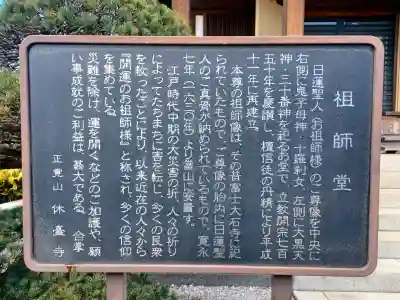 祖師堂
日蓮聖人（お祖師様）のご尊像を中央に
右側に鬼子母神・十羅刹女、左側に大黒天
神・三十番神を祀るお堂で、立教開宗七百
五十年を慶讃し、檀信徒の丹精により平成
十一年に再建立。
本尊の祖師像は、その昔富士大石寺に祀
られていたもので、ご尊像の胎内に日蓮聖
人のご真骨が納められているもので、寛永
七年（一六三〇年）より當山に安置す。
江戸時代中期の大災害の折、人々の祈り
によってたちまちに害を転じ、多くの民衆
を救ったことにより、以来近在の人々から
『開運のお祖師様』と称され、多くの信仰
を集めている。
災難を除け、運を開くなどのご加護や、願
い事成就のご利益は、甚大である。 合掌
正覚山 休臺寺